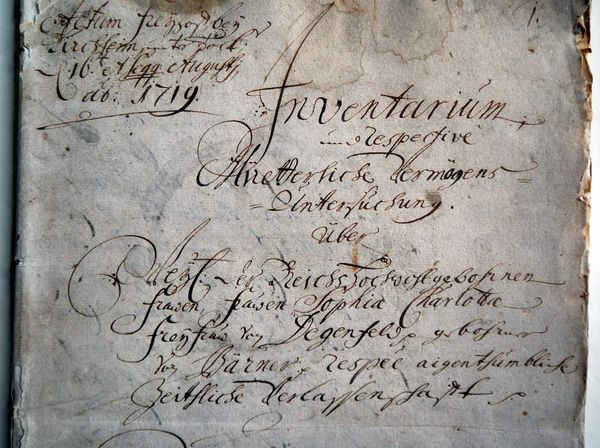 1.
Actum Freyhoff bey
Kirchheim
16t et seqq Augusti
ao: 1719.
Inventarium,
und respective
Mütterliche Vermögens
=Untersuchung.
Über
Weyl: der Reichs Hochwohlgebohrnen
Frauen, Frauen Sophia Charlotta
Freyfrau von Degenfeld, gebohrner
von Wärner, respec aigenthümbliche
Zeitliche Verlassenschafft.